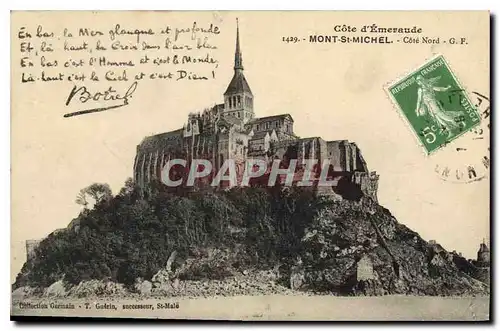 En bas, la Mer glauque et profonde
Et, là haut, la Croix dans l'air bleu
En bas c'est l'Homme et c'est le Monde,
Là-haut c'est le Ciel et c'est Dieu !
Botrel
Côte d'Émeraude
1429. - MONT-St-MICHEL. - Côté Nord - G. F.
RÉPUBLIQUE FRANÇAISE
POSTES
5c
CPARAMA.com
Collection Germain - T. Guérin, successeur, St-Malo